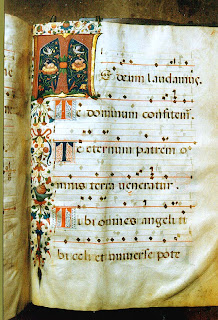 Te deum laudamus,
Te dominum confitem.
Te eternum patrem o
mnis terra veneratur.
Tibi omnes angeli ti
bi celi et universe pote